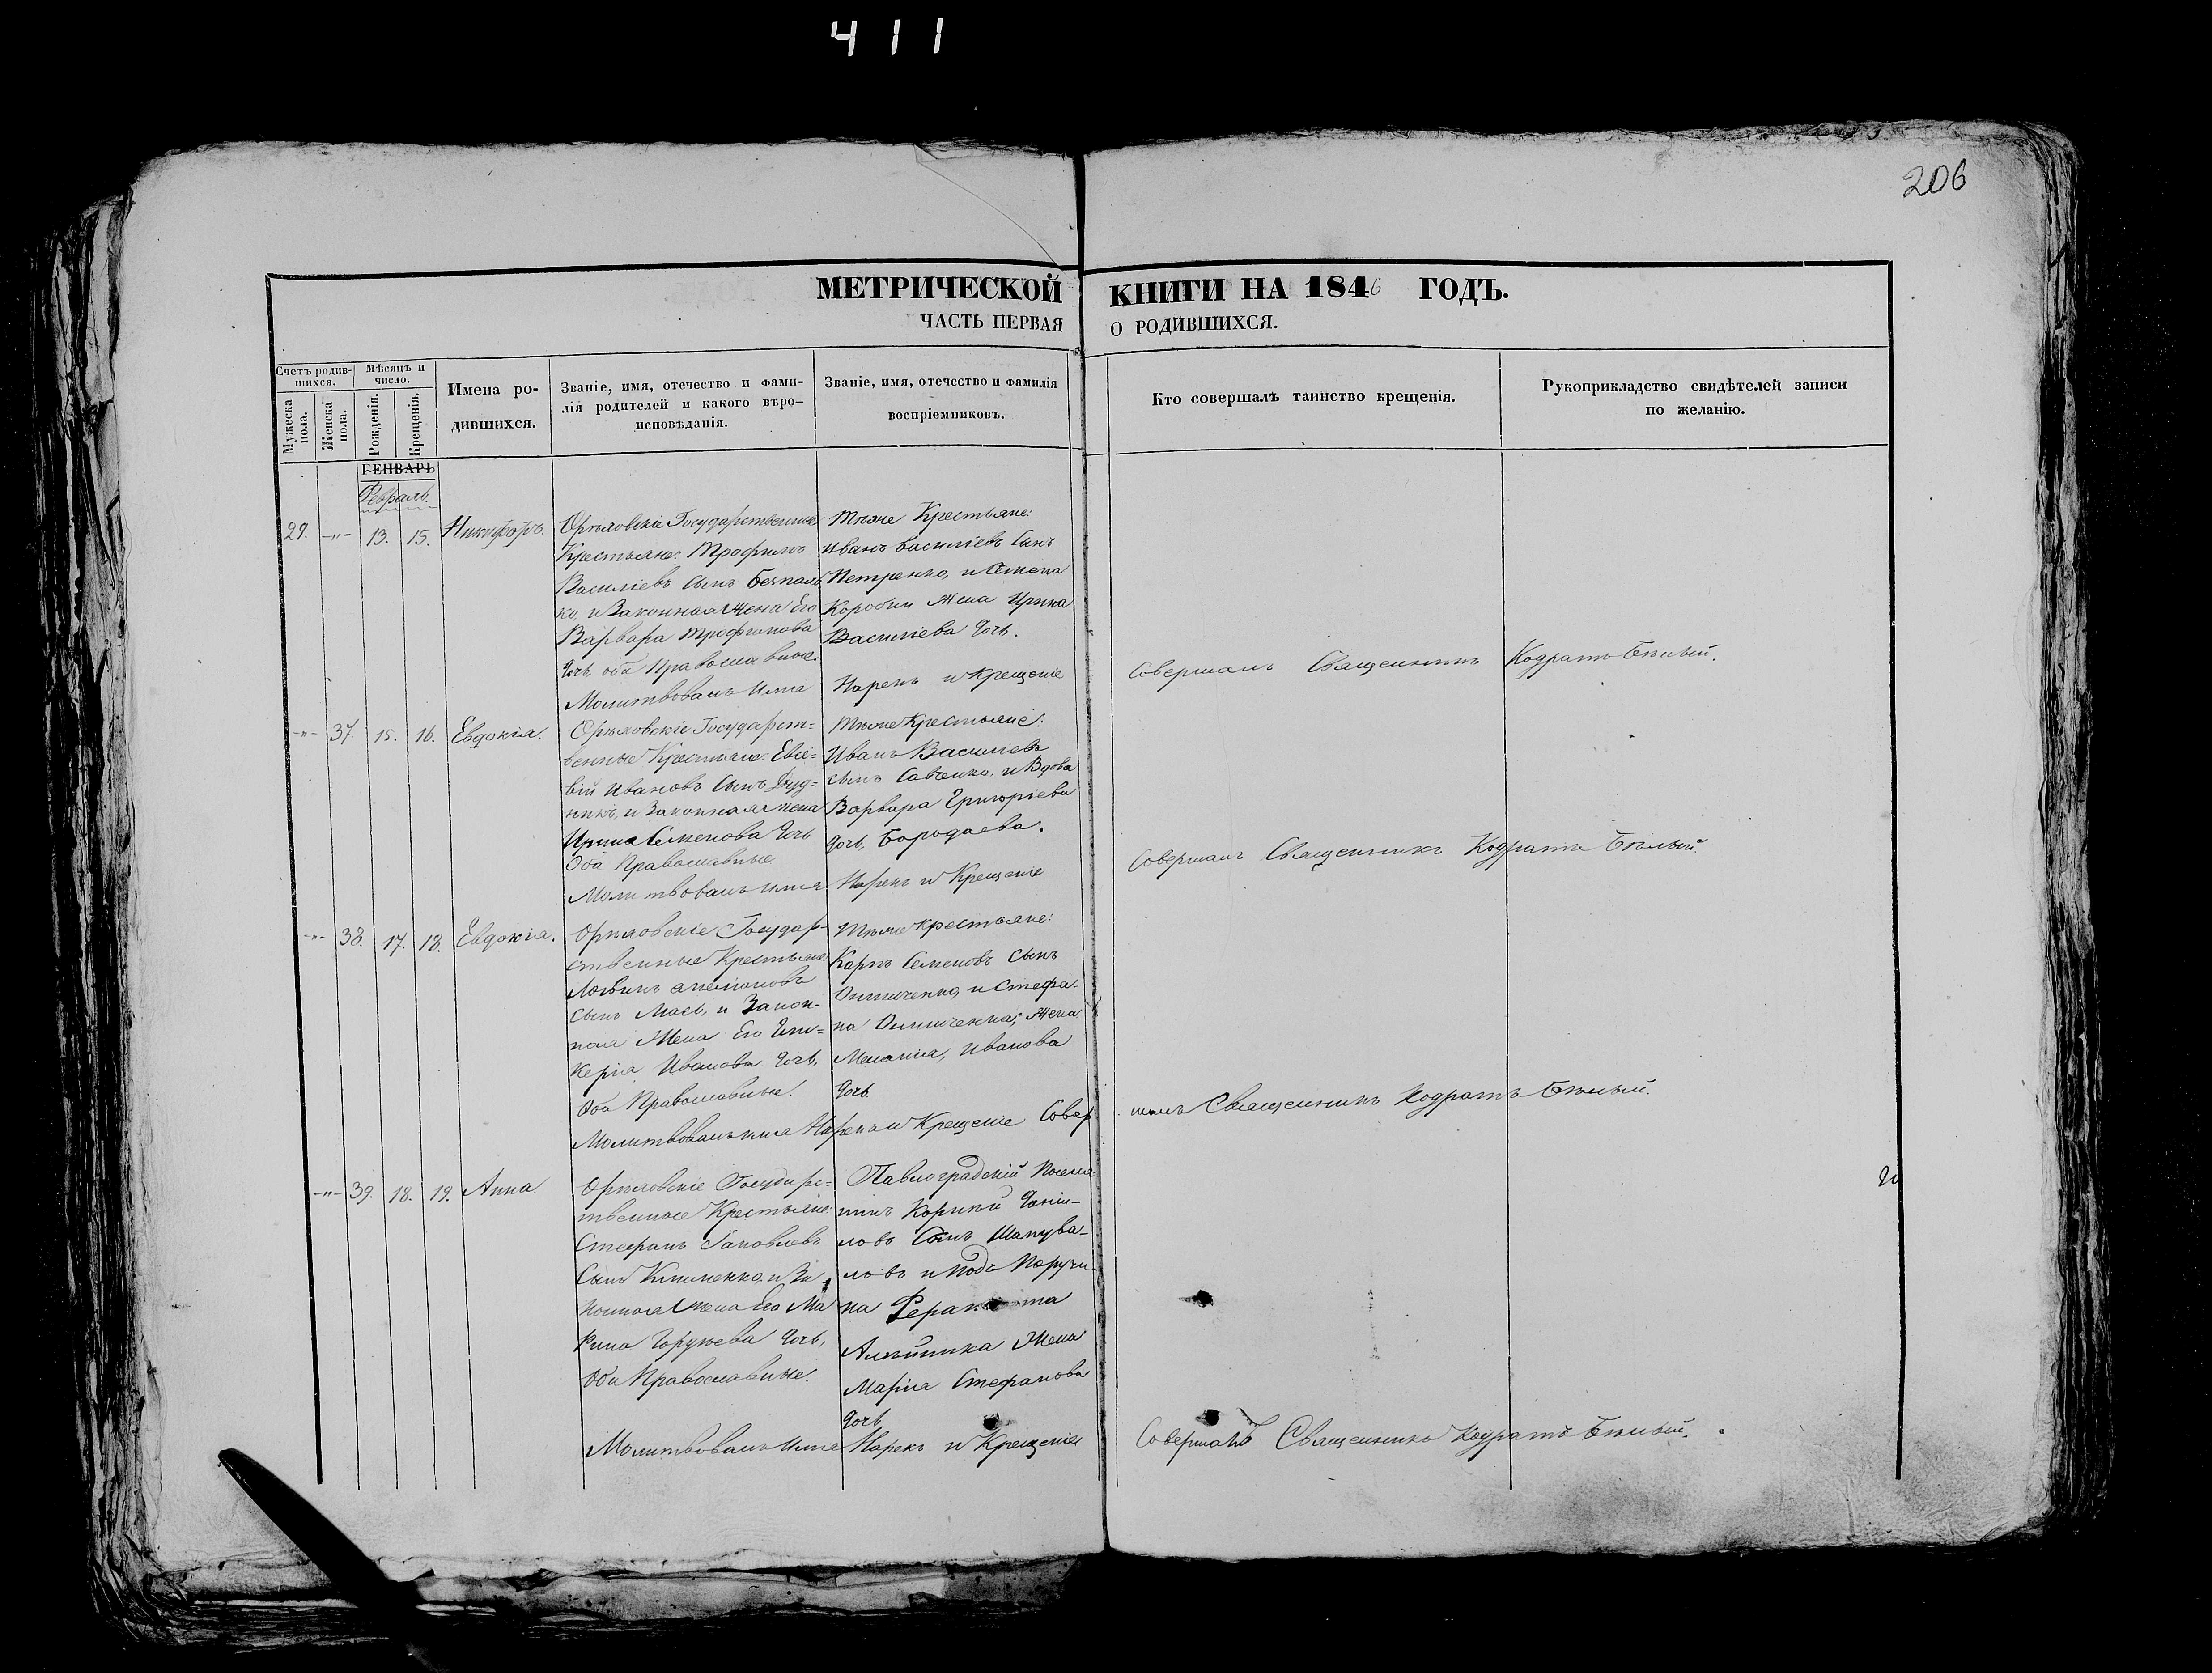 411
206
МЕТРИЧЕСКОЙ КНИГИ НА 1846 ГОДЪ.
ЧАСТЬ ПЕРВАЯ О РОДИВШИХСЯ.
Счетъ родив-
шихся.
Мужеска
пола.
Женска
пола.
Мѣсяцъ и
число.
Рожденія.
Крещенія.
Имена ро-
дившихся.
Званіе, имя, отечество и фами-
лія родителей и какого вѣро-
исповѣданія.
Званіе, имя, отечество и фамилія
воспріемниковъ.
Кто совершалъ таинство крещенія.
Рукоприкладство свидѣтелей записи
по желанію.
ГЕНВАРЬ
Февраль.
29. -"- 13. 15. Никифоръ.
Орѣловскіе Государственные
Крестьяне: Трофимъ
Василіевъ Сынъ Безпаль
ко, и Законная Жена Его
Варвара Трофимова
дочь, оба Православные.
Молитвовалъ Имя
Тѣже Крестьяне:
Иванъ Василіевъ Сынъ
Петренко, и Семена
Жена Ирина
Василіева дочь.
Нарекъ и Крещеніе
Совершалъ Священникъ Кодратъ Бѣлый.
-"- 37. 15. 16. Евдокія.
Орѣловскіе Государст-
венные Крестьяне:
вій Ивановъ Сынъ Дуд-
никъ, и Законная Жена
Ирина Семенова дочь
Оба Православные.
Молитвовалъ имя
Тѣже Крестьяне:
Иванъ Василіевъ
сынъ Савченко, и Вдова
Варвара Григоріева
дочь, Бородаева.
Нарекъ и Крещеніе
Совершалъ Священникъ Кодратъ Бѣлый.
-"- 38. 17. 18. Евдокія.
Орѣловскіе Государ-
ственные Крестьяне:
Логвинъ
сынъ и Закон-
ная Жена Его Гли-
керія Иванова дочь,
Оба Православные.
Молитвовалъ имя Нарекъ и Крещеніе Совер
Тѣже крестьяне:
Карпъ Семеновъ сынъ
Онищенко, и Стефа-
на Онищенка, Жена
Меланія, Иванова
дочь.
шалъ Священникъ Кодратъ Бѣлый.
-"- 39. 18. 19. Анна.
Орѣловскіе Государс-
твенные Крестьяне:
Стефанъ Іаковлевъ
Сынъ Клименко, и За
конная Жена Его Ма
рина дочь,
Оба Православные.
Молитвовалъ Имя
Павлоградскій Поселя
нинъ Корнилій Даніи-
ловъ Сынъ Шапова-
ловъ и Подъ Поручи
ка
Алейника Жена
Марія Стефанова
дочь
Нарекъ и Крещеніе
Совершалъ Священникъ Кодратъ Бѣлый.